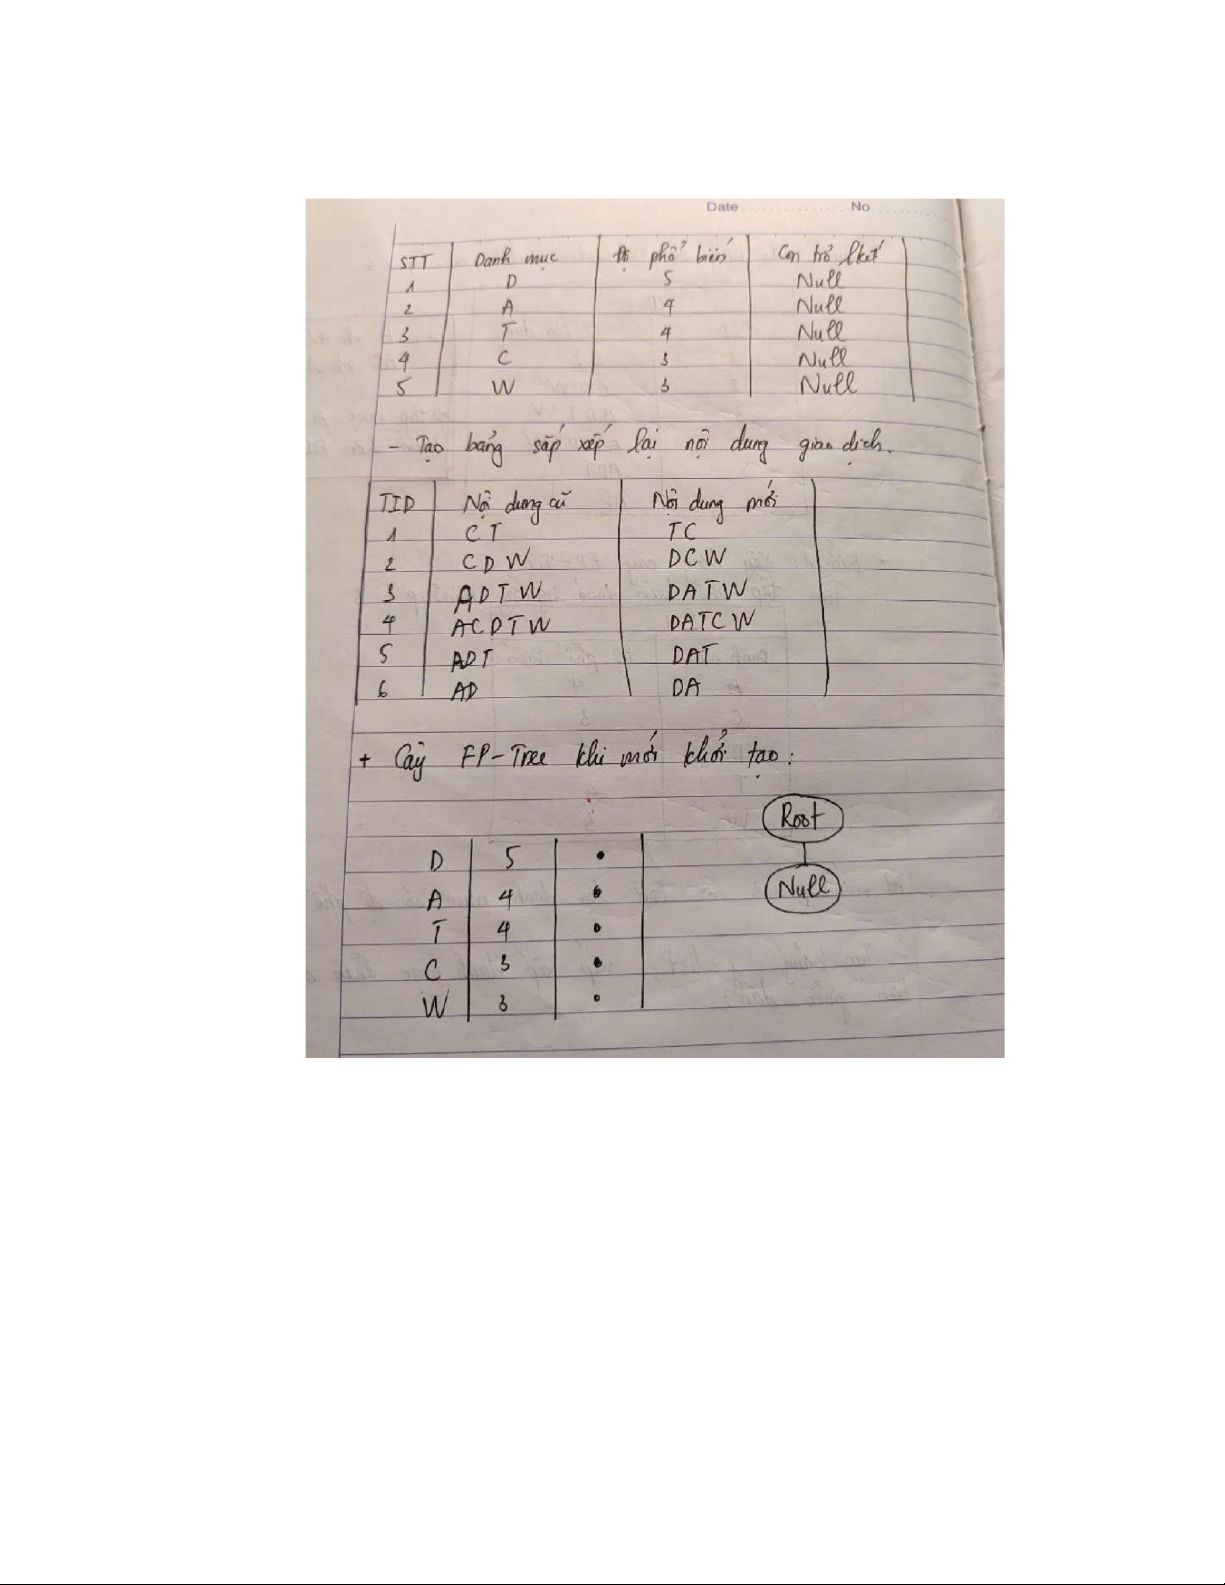 Date No
STT Danh mục Độ phổ biến Con trỏ lkết
1 D 5 Null
2 A 4 Null
3 T 4 Null
4 C 3 Null
5 W 3 Null
- Tạo bảng sắp xếp lại nội dung giao dịch.
TID Nội dung cũ Nội dung mới
1 CT TC
2 CDW DCW
3 ADTW DATW
4 ACDTW DATCW
5 ADT DAT
6 AD DA
+ Cây FP-Tree khi mới khởi tạo:
Root
D 5
Null
A 4
T 4
C 3
W 3